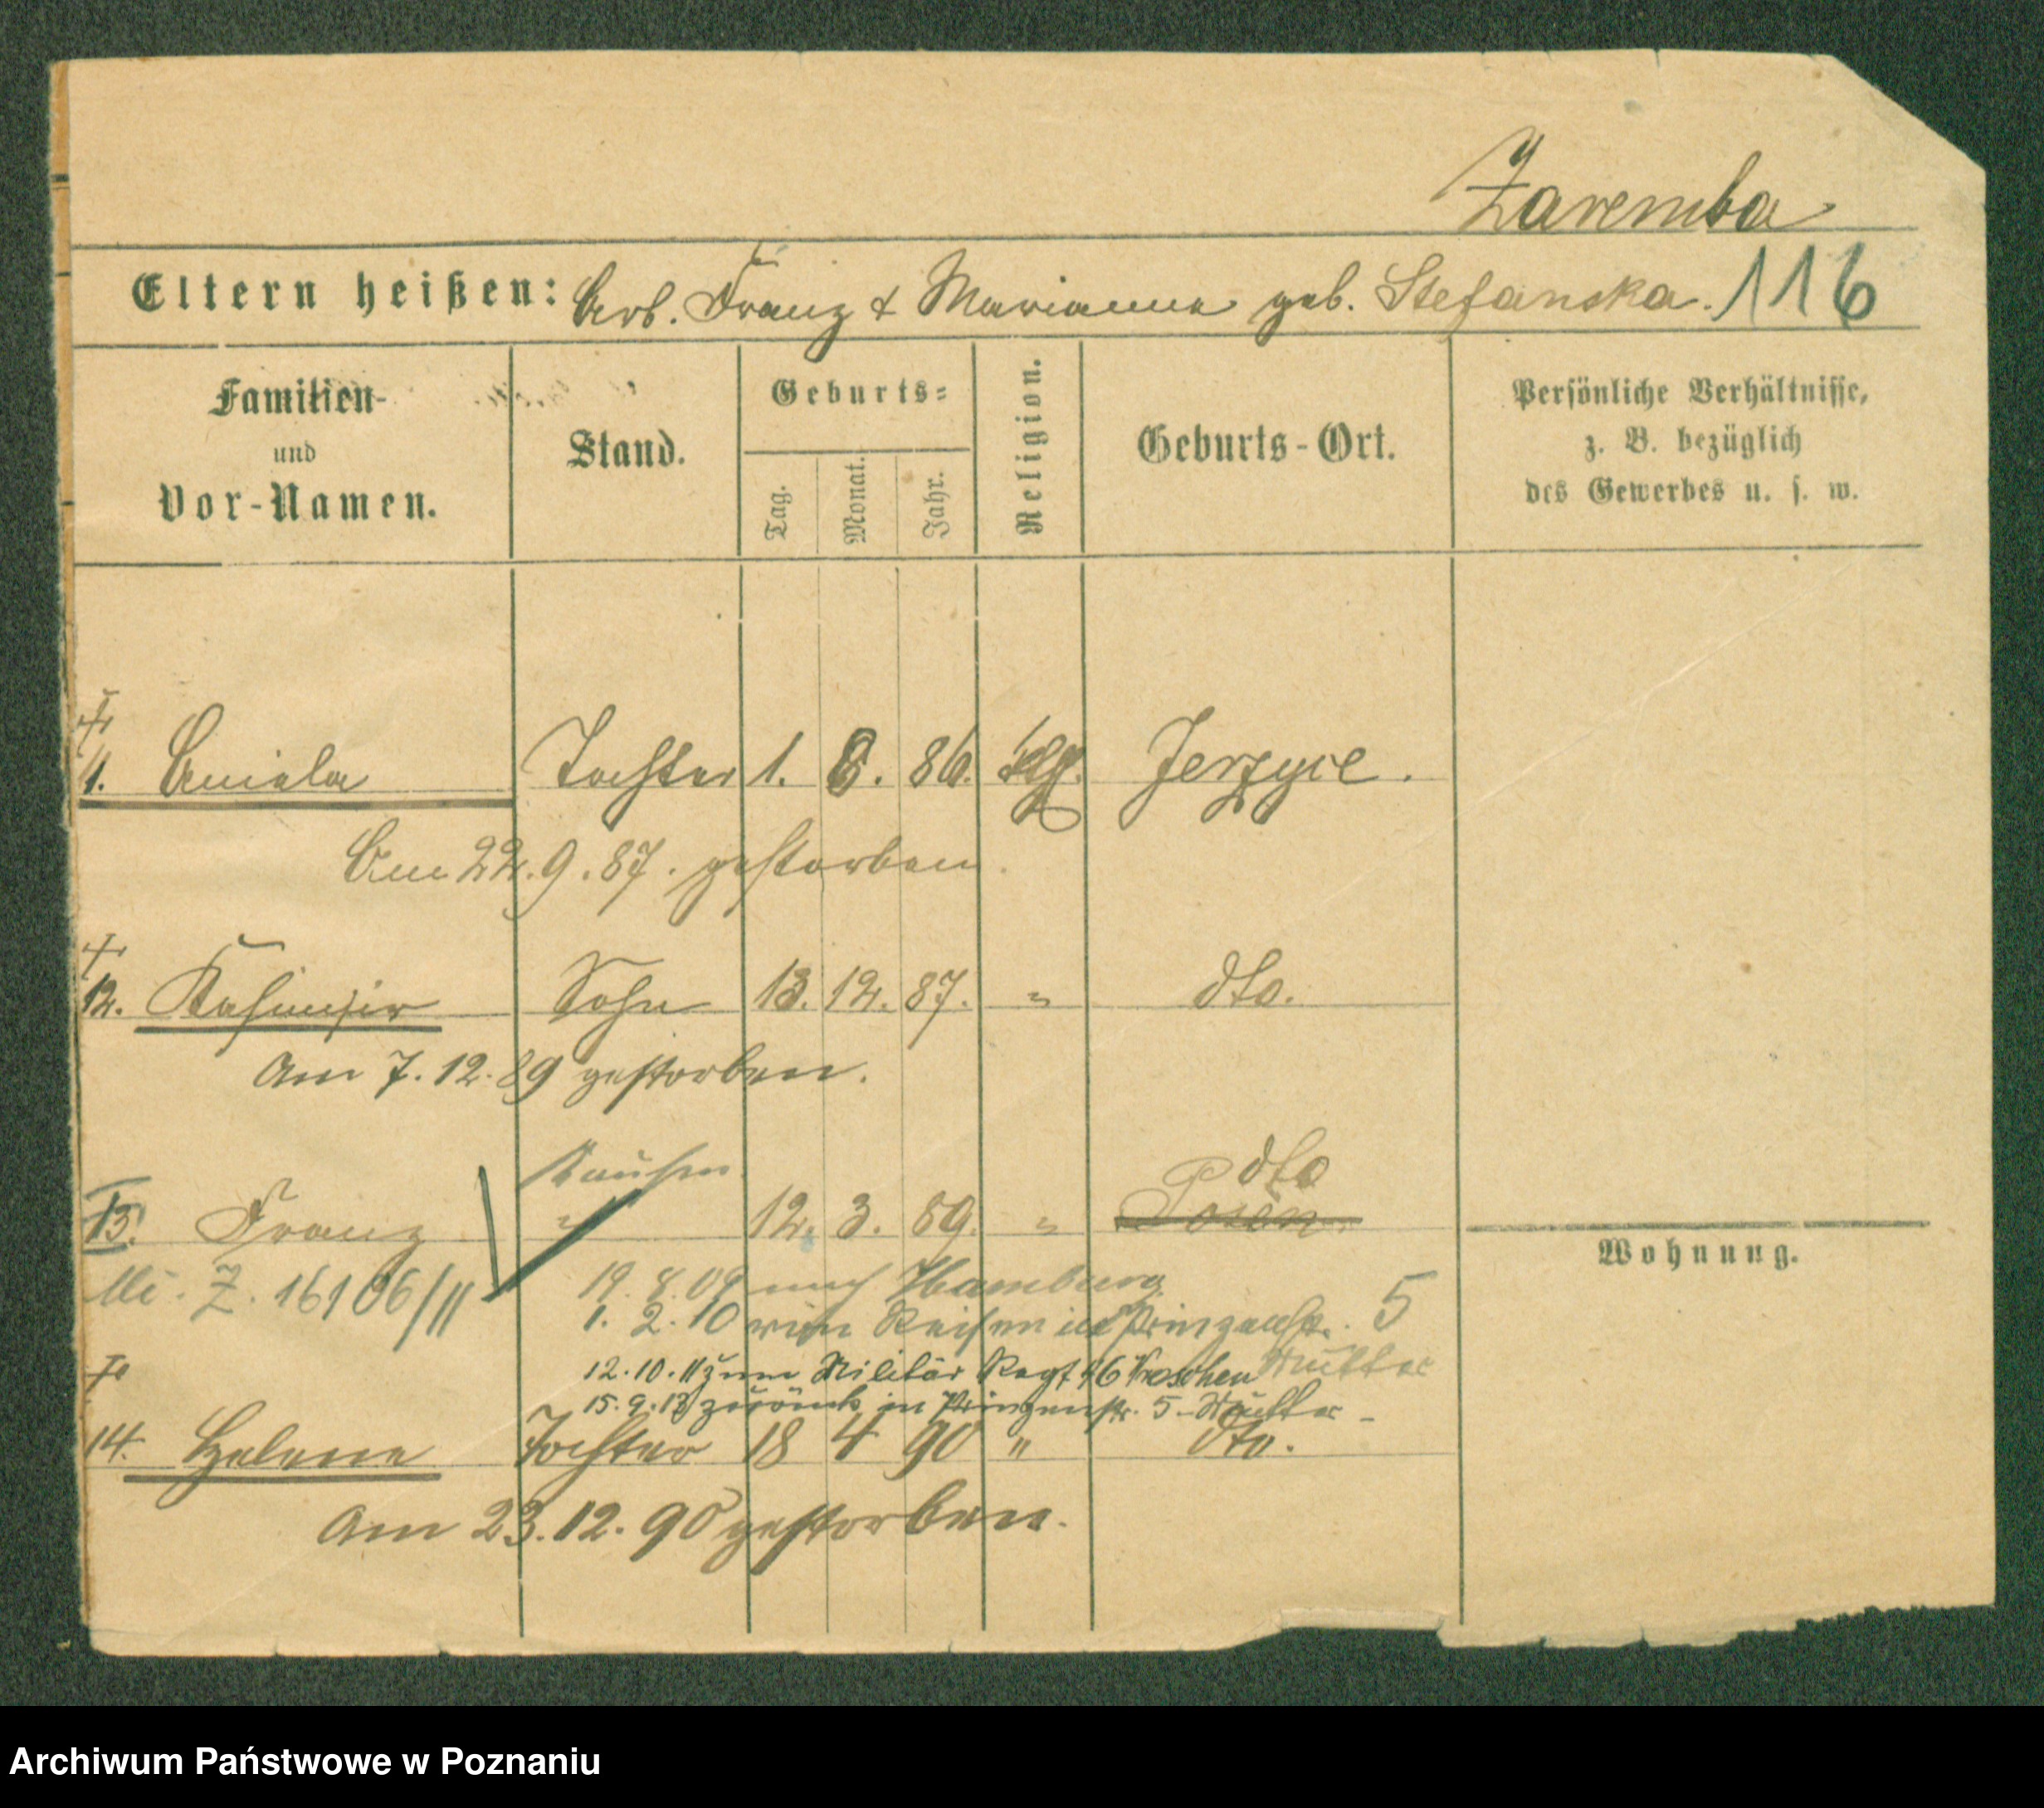 Zaremba
Eltern heißen: Arb. Franz & Marianna geb. Stefanska. 116
Familien-
und
Vor-Namen.
Stand.
Geburts-
Tag.
Monat.
Jahr.
Religion.
Geburts-Ort.
Persönliche Verhältnisse,
z. B. bezüglich
des Gewerbes u. s. w.
11. Aniela Tochter 1. 8. 86. kth. Jerzyce.
Am 22.9.87. gestorben.
12. Kasimir Sohn 13. 12. 87. " dto.
Am 7.12.89 gestorben.
dto
13. Franz " 12. 3. 89. " Posen
Wohnung.
Z. 16106/II
19.8.09 nach Hamburg
1. 2. 10 von Reisen in Prinzenstr. 5
12.10.11 zum Militär Regt 46 Wreschen Mutter
15.9.13 zurück in Prinzenstr. 5 - Mutter -
14. Helene Tochter 18 4 90 " dto.
Am 23.12.90 gestorben.
Archiwum Państwowe w Poznaniu